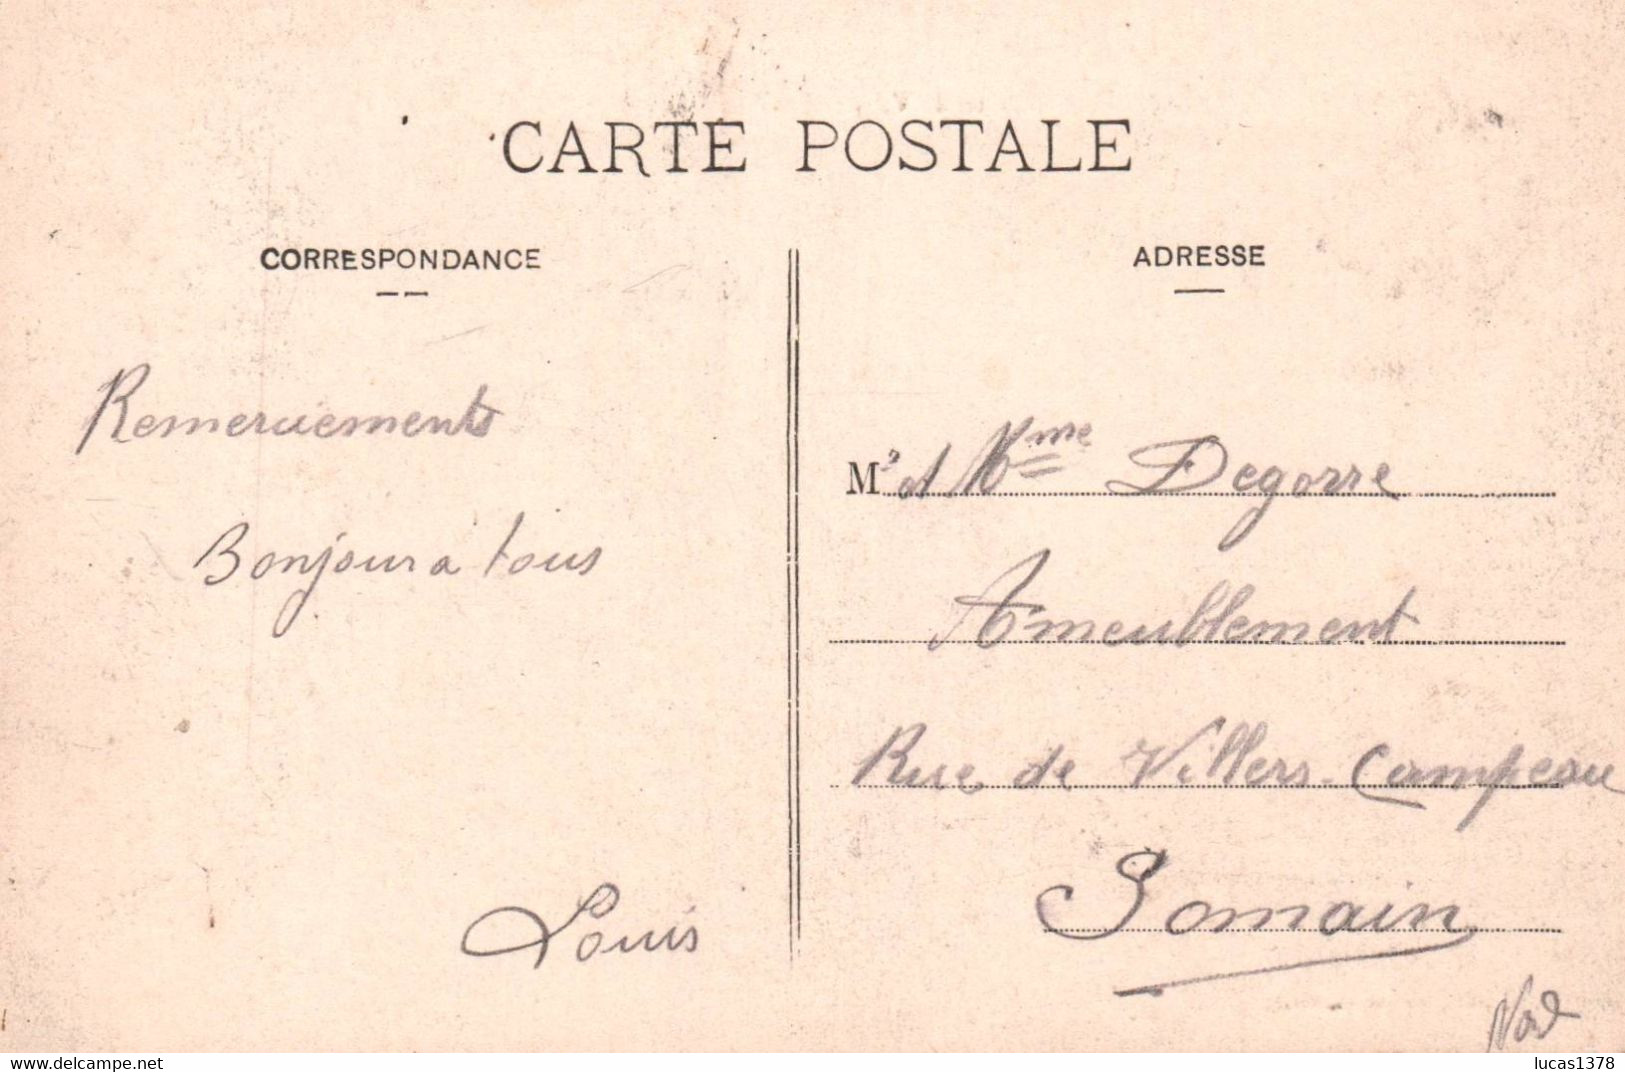 CARTE POSTALE
CORRESPONDANCE
Remerciements
Bonjour a tous
Louis
ADRESSE
Mr et Mme Degorre
Ameublement
Rue de Villers-Campeau
Somain
Nord
www.delcampe.net
lucas1378